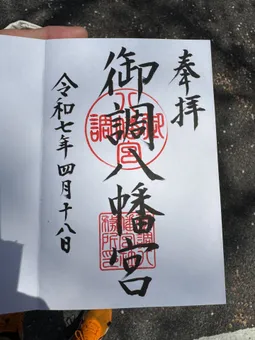 奉拝
御調八幡宮
令和七年四月十八日